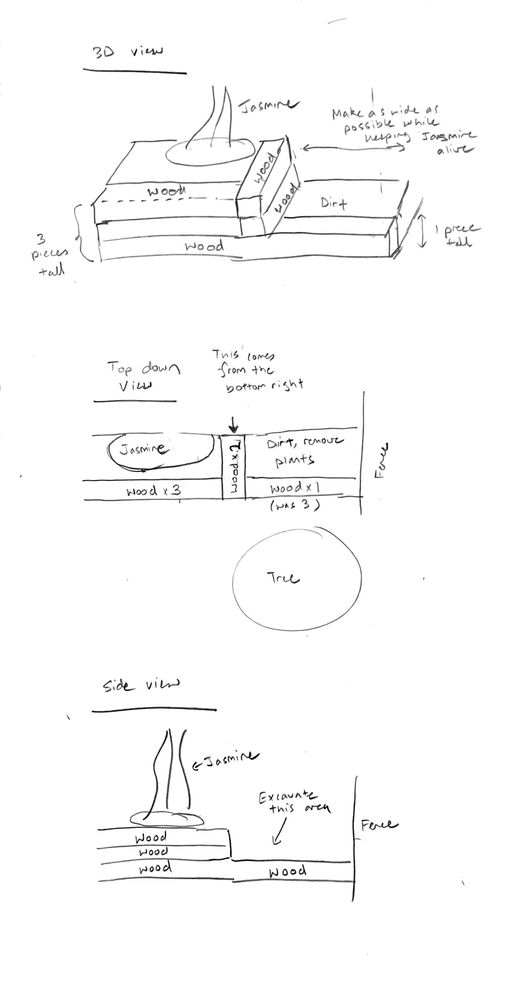 3D view
Jasmine
Make as wide as
possible while
keeping Jasmine
alive
Wood
Wood
Wood
Dirt
3
pieces
tall
Wood
1 piece
tall
Top down
View
This comes
from the
bottom right
Jasmine
Wood x 2
Dirt, remove
plants
Fence
Wood x 3
Wood x 1
(was 3)
Tree
Side view
Jasmine
Excavate
this area
Fence
Wood
Wood
Wood
Wood